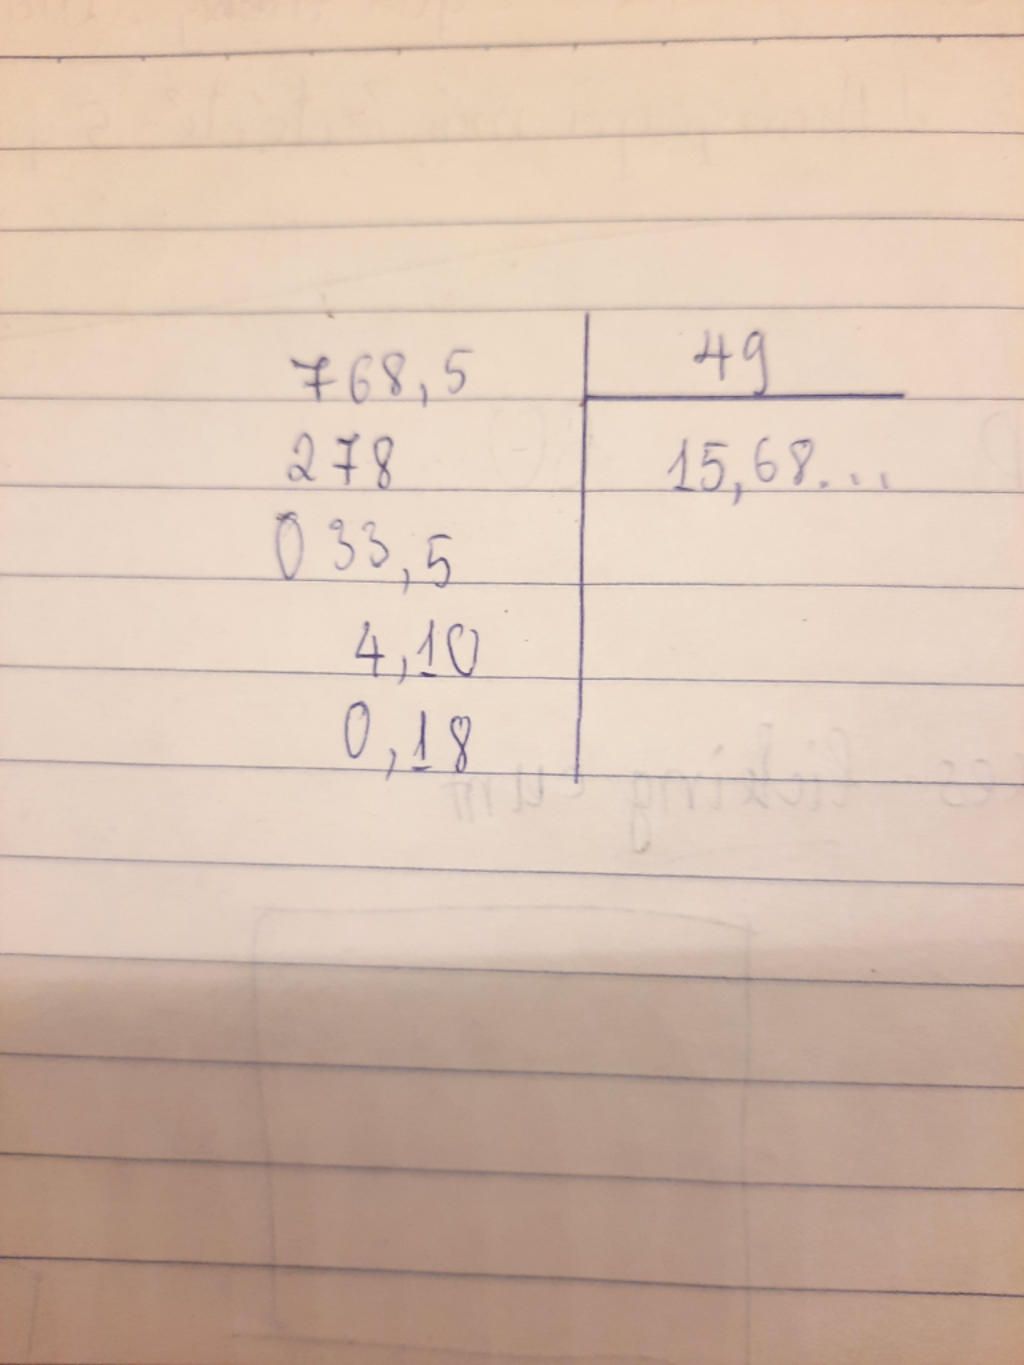 768,5 49
278 15,68...
033,5
4,10
0,18